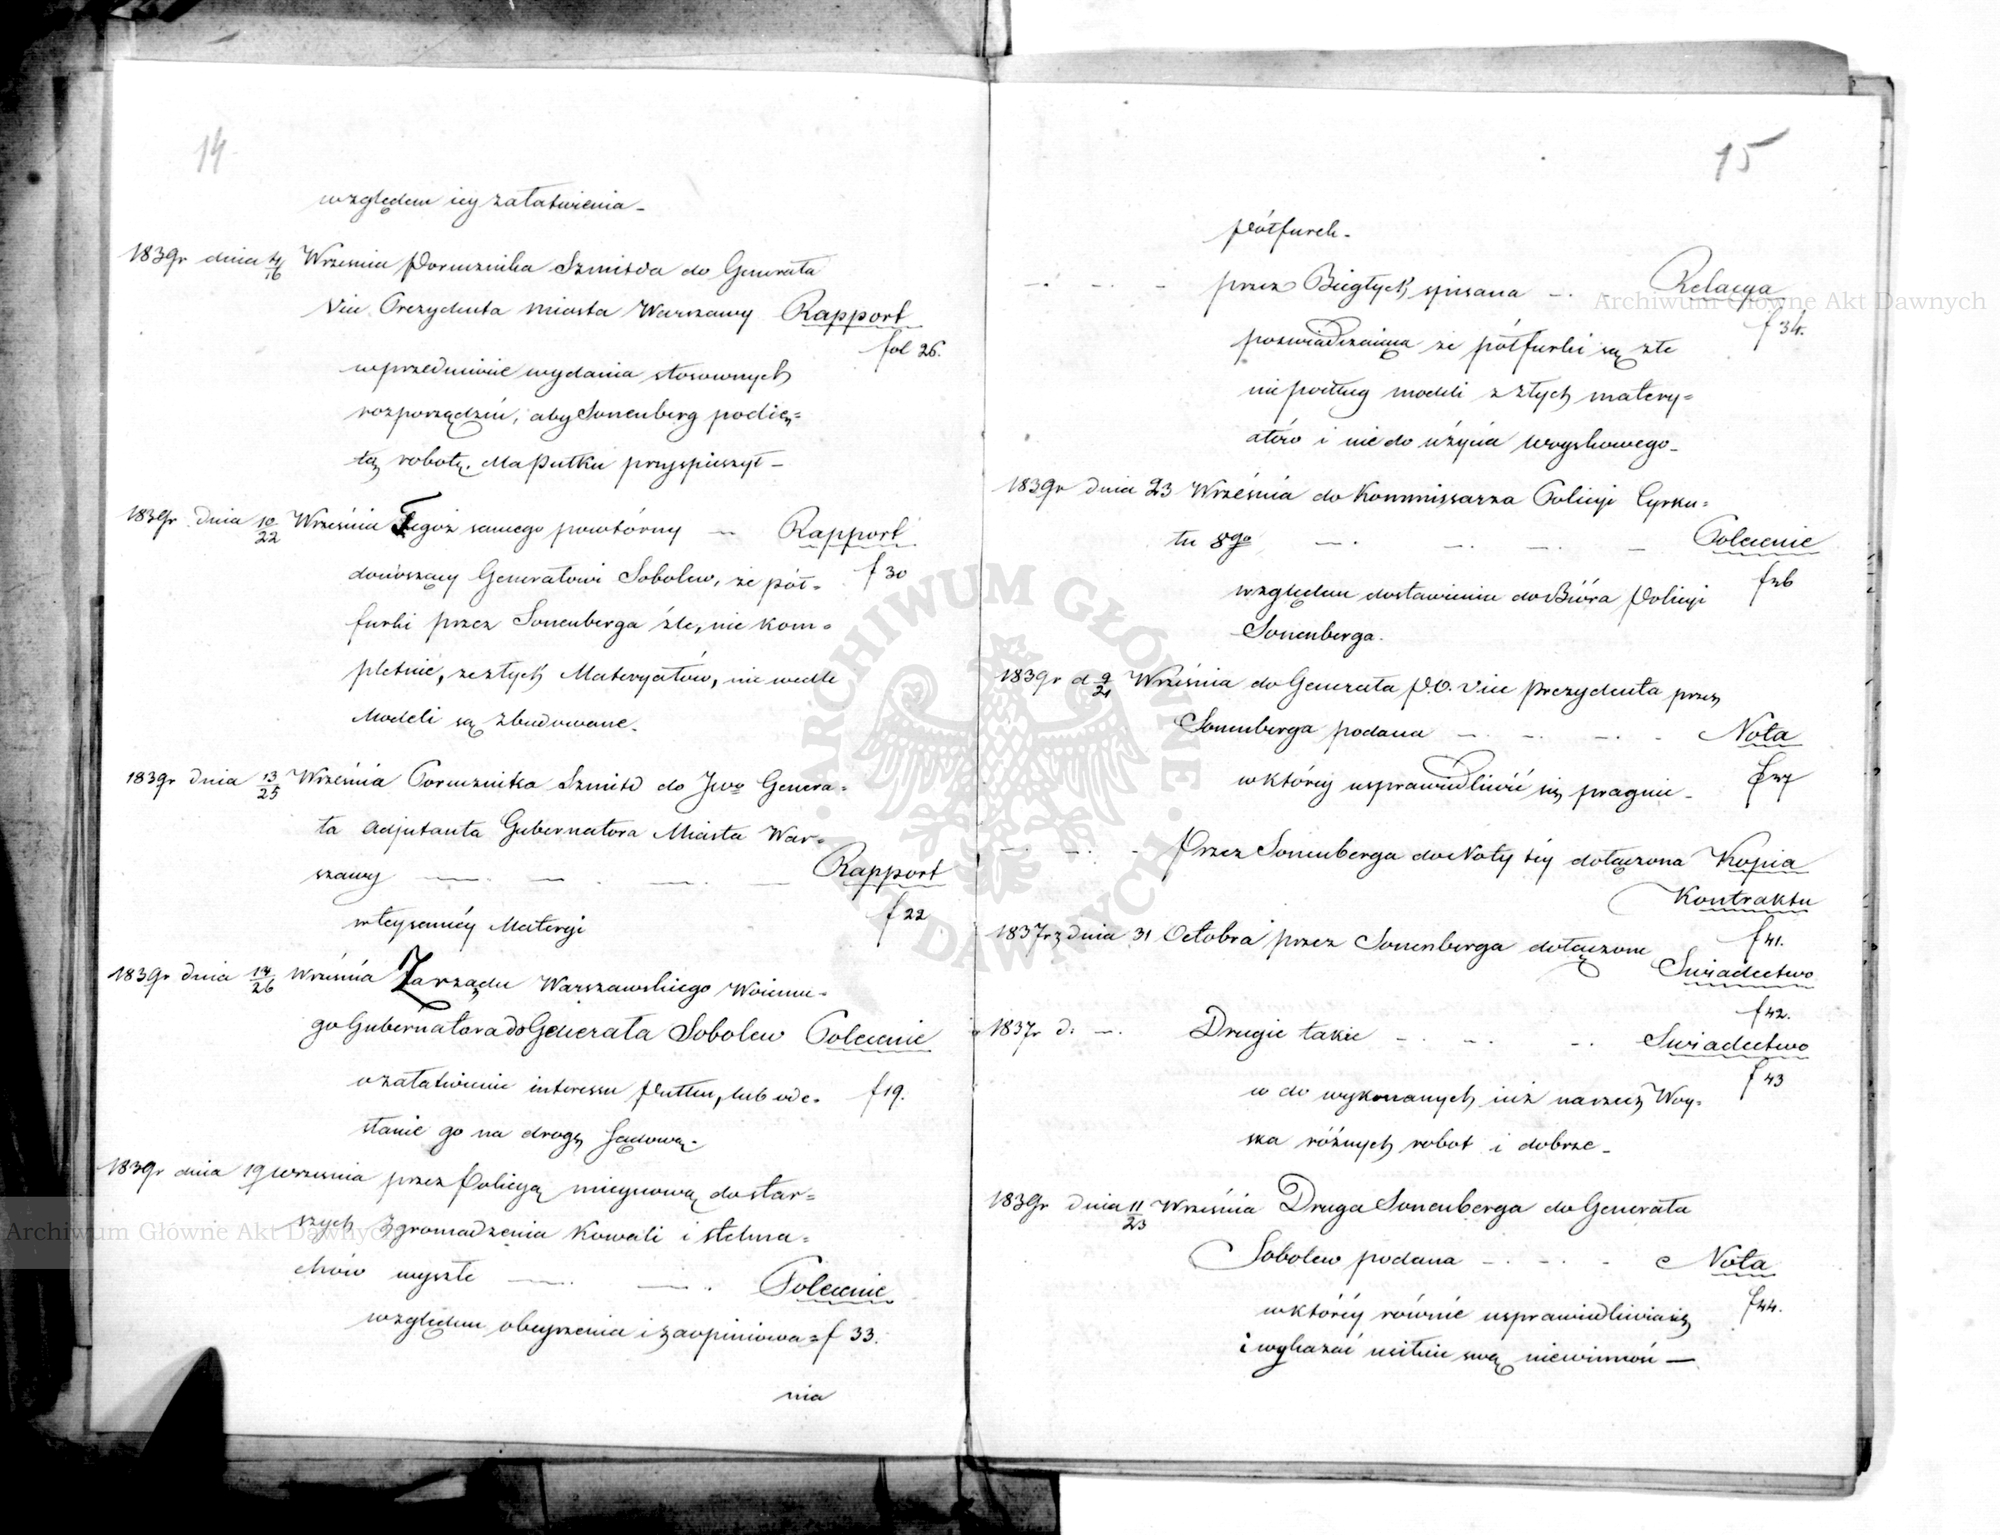 14
względem iey załatwienia -
1839r dnia 4/16 Wrzesnia Porucznika Szmidta do Generała
Vice Prezydenta Miasta Warszawy Rapport
fol 26.
wprzedmiocie wydania stosownych
rozporządzeń, aby Sonenberg podię=
tą robotę dla Pułku przyspieszył -
1839r dnia 10/22 Września Tegoż samego powtórny — Rapport
donoszący Generałowi Sobolew, że pół= f 30
furki przez Sonenberga źle, nie kom=
pletnie, ze złych Materyałów, nie wedle
Modeli są zbudowane.
1839r dnia 13/25 Września Porucznika Szmidt do Jwo Genera=
ła Adjutanta Gubernatora Miasta War=
szawy — — . — . — Rapport
w teysaméy Materyi f 22
1839r dnia 14/26 Września Zarządu Warszawskiego Woienne=
go Gubernatora do Generała Sobolew Polecenie
o załatwienie interessu Pułku, lub ode= f 19.
słanie go na drogę Sądową -
1839r dnia 19 Wrzesnia przez Policyą mieyscową do star=
szych Zgromadzenia Kowali i stelma=
chów wyszłe — . — . Polecenie
względem obeyrzenia i zaopiniowa= f 33.
nia
15
półfurek -
— . — . — - przez Biegłych spisana — . Relacya
f 34.
poswiadczaiąca że półfurki są złe
nie podług modeli z złych matery=
ałów i nie do użycia woyskowego -
1839r dnia 23 Września do Kommissarza Policyi Cyrku=
łu 8go — . — . — . — Polecenie
względem dostawienia do Bióra Policyi f 36
Sonenberga.
1839r d 9/21 Września do Generała P.O. Vice Prezydenta przez
Sonenberga podana — . — . — . - Nota
w któréy usprawiedliwić się pragnie - f 37
— . — . - Przez Sonenberga do Noty téy dołączona Kopia
Kontraktu
f 41.
1837r z dnia 31 Octobra przez Sonenberga dołączone
Swiadectwo
f 42.
1837r d. — . Drugie takie — . — . — . Swiadectwo
f 43
w do wykonanych iuż na rzecz Woy=
ska różnych robot i dobrze -
1839r dnia 11/23 Września Druga Sonenberga do Generała
Sobolew podana — . — . - Nota
w któréy równie usprawiedliwia się f 44.
i wykazać usiłuie swą niewinność —
Archiwum Główne Akt Dawnych
Archiwum Główne Akt Dawnych
ARCHIWUM GŁÓWNE AKT DAWNYCH